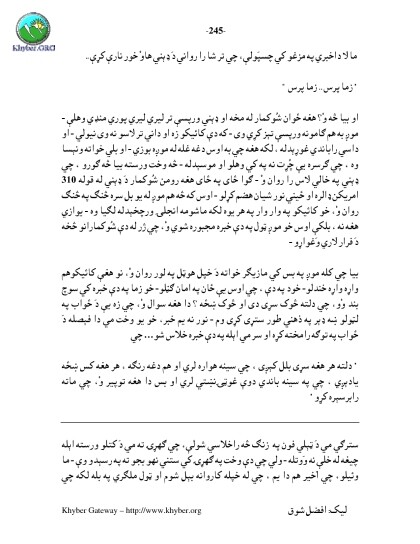 Khyber.ORG
-245-
ما لا دا خبرې په مزغو کې چسپولې، چې تر شا را روانې د ډېنې هاو خور نارې کړې..
" زما پرس.. زما پرس "
او بيا څه و؟ هغه ځوان شوکمار له مخه او ډېنې ورپسې تر ليرې ليرې پورې منډې وهلې -
موږ يې هم ګامونه ورپسې تېز کړي وي - که دې کانيکو زه او داني تر لاسو نه وی نيولي - او
داسې را باندې غورېدله، لکه هغه چې به اوس دغه غله له موږه يوزي - او بلې خواته ونېسا
وه، چې ګرسره يې چرت نه په کې وهلو او موسېدله - څه وخت ورسته بيا څه ګورو، چې
ډېنې په خالي لاس را روان و - ګوا ځای په ځای هغه رومن شوکمار د ډېنې له قوله 310
امريکن ډالره او ځينې نور شيان هضم کړلو - اوس که څه هم موږ له يو بل سره څنګ په څنګ
روان و، خو کانيکو په وار وار په هر يوه لکه ماشومه انجلۍ ورچخېدله لګيا وه - يوازې
هغه نه، بلکې اوس خو موږ ټول په دې خبره مجبوره شوي و، چې ژر له دې شوکمارانو څخه
د فرار لارې وغواړو -
بيا چې کله موږ په بس کې مازيګر خوانه د خپل هوټل په لور روان و، نو هغې کانيکو هم
واړه واړه خندلو - خود په دې، چې اوس يې ځان په امان ګڼلو - خو زما په دې خبره کې سوچ
بند و، چې دلته څوک سړی دی او څوک ښځه؟ دا هغه سوال و، چې زه يې د ځواب په
لټولو ښه ډېر په ذهني طور ستړی کړی وم - نور نه يم خبر. خو يو وخت مې دا فيصله د
ځواب په توګه رامخته کړه او سر مې ابله په دې خبره خلاس شو... چې
" دلته هر هغه سړی بلل کېږي، چې سينه هواره لري او هم دغه رنګه، هر هغه کس ښځه
يادېږي، چې په سينه باندې دوې غوټۍ نښتې لري او بس دا هغه توپير و، چې ماته
رابرسېره کړو "
سترګې مې د ټېلي فون په زنګ څه راخلاسې شولې، چې ګهړۍ ته مې د کتلو ورسته ابله
چيغه له خلې نه ووتله - ولې چې دې وخت په ګهړۍ کې ستنې نهو بجو ته په رسېدو وې - ما
وئيلو، چې اخير هم دا يم، چې له خپله کاروانه بېل شوم او ټول ملګري په بله لکه چې
Khyber Gateway – http://www.khyber.org
ليک: افضل شوق